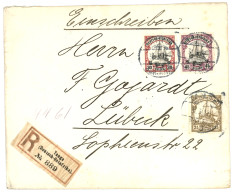 Einschreiben
Herrn
F. Gojardt
Lübeck
Sophienstr 22
R
(Deutsch-Ostafrika)
№ 689